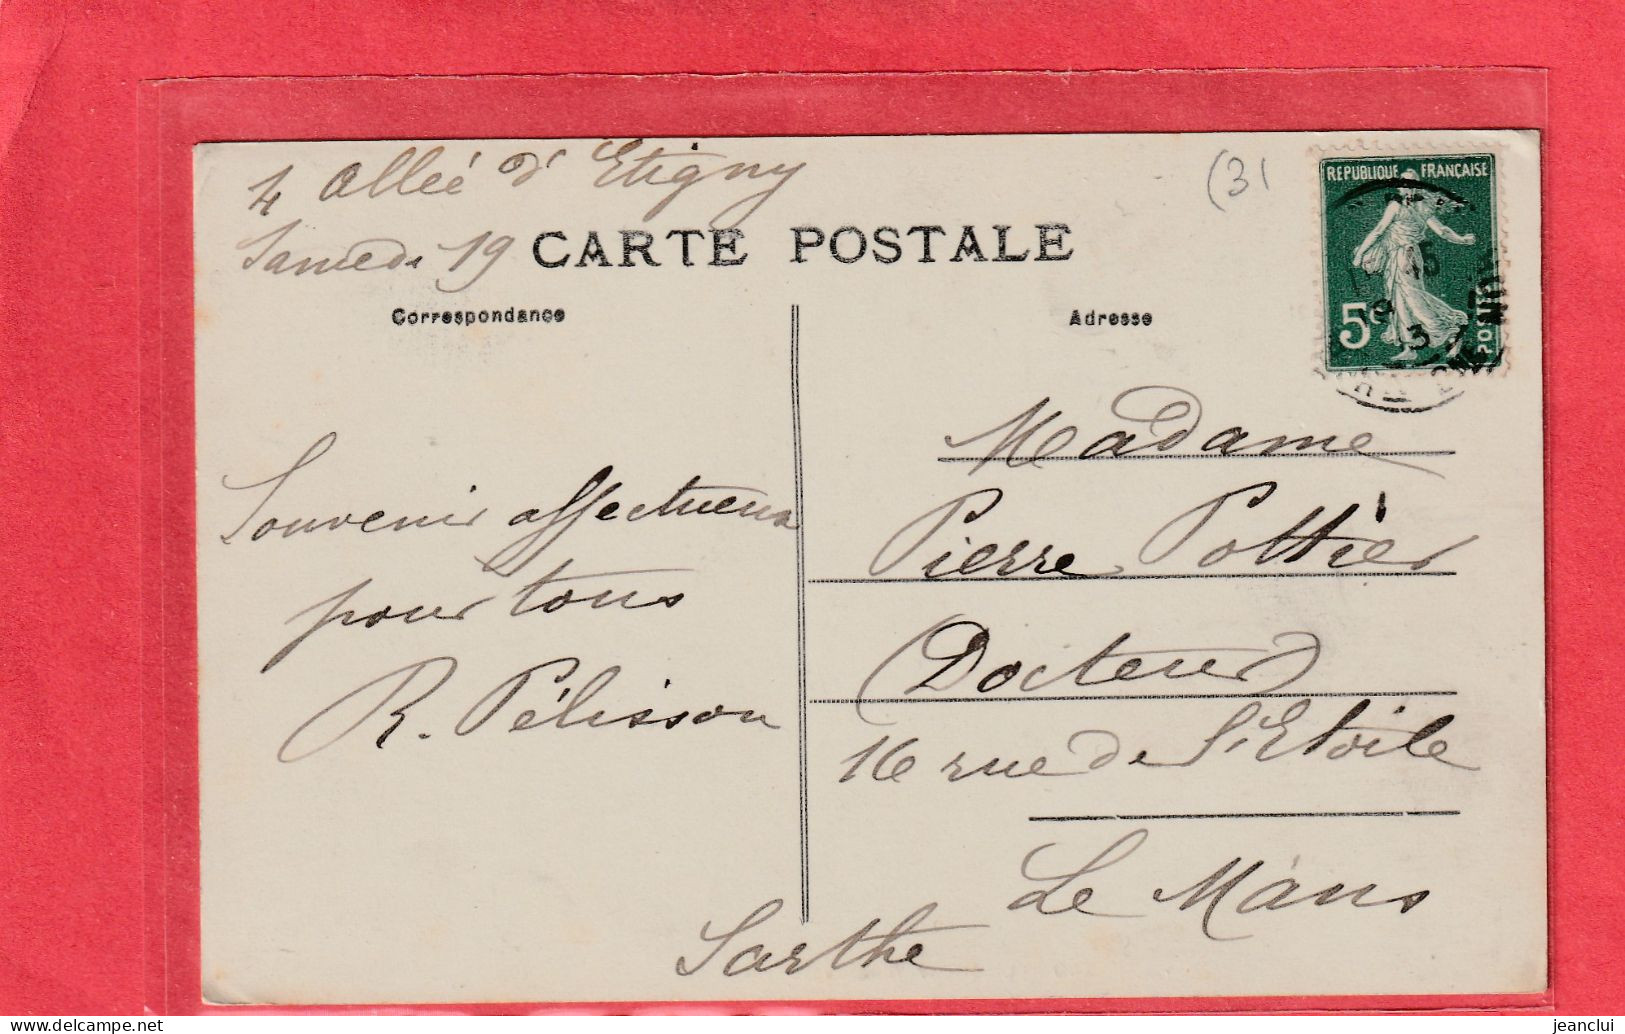 4 Allée d'Etigny
(31
REPUBLIQUE FRANÇAISE
Samedi 19
CARTE POSTALE
5c
POSTES
Correspondance
Adresse
Souvenir affectueux
pour tous
R. Pélisson
Madame
Pierre Pottier
(Docteur)
16 rue de l'Etoile
Le Mans
Sarthe
delcampe.net
jeanclui